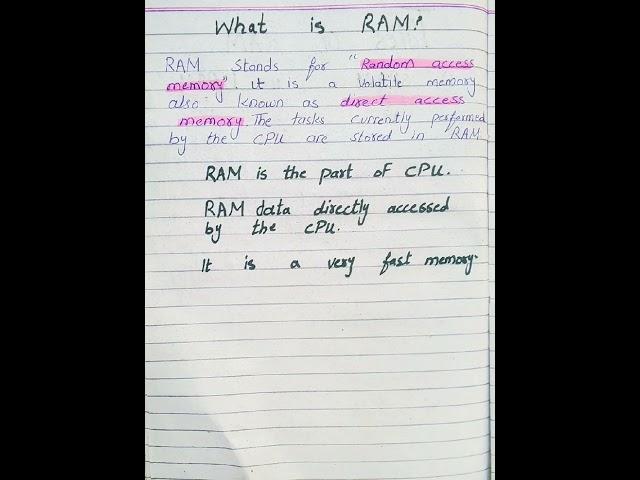 What is RAM?
RAM stands for "Random access
memory" it is a volatile memory
also known as direct access
memory. The tasks currently performed
by the CPU are stored in RAM
RAM is the part of CPU.
RAM data directly accessed
by the CPU.
It is a very fast memory.